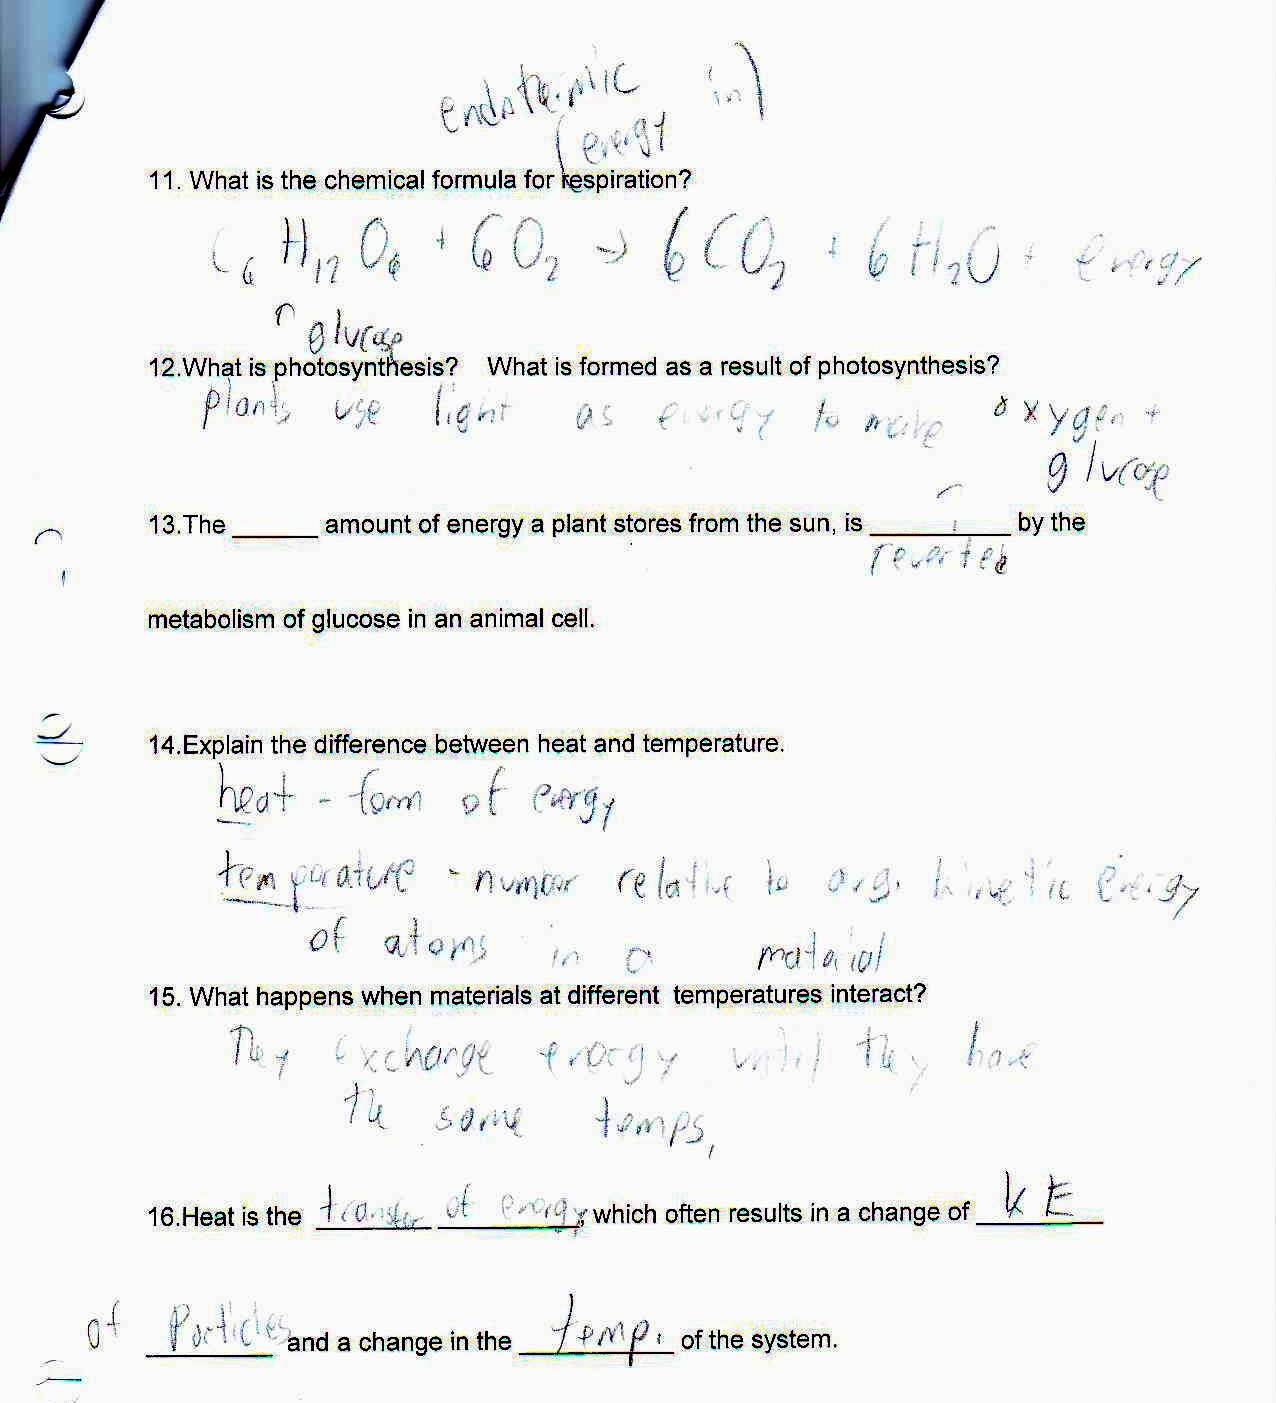 endothermic in)
(energy
11. What is the chemical formula for respiration?
C₆ H₁₂ O₆ + 6O₂ → 6CO₂ + 6H₂O + energy
glucose
12.What is photosynthesis? What is formed as a result of photosynthesis?
plants use light as energy to make oxygen +
glucose
13.The ______ amount of energy a plant stores from the sun, is __________ by the
reverted
metabolism of glucose in an animal cell.
14.Explain the difference between heat and temperature.
heat - form of energy
temperature - number relative to avg. kinetic energy
of atoms in a material
15. What happens when materials at different temperatures interact?
They exchange energy until they have
the same temps,
16.Heat is the transfer of energy, which often results in a change of KE
of Particles and a change in the temp. of the system.